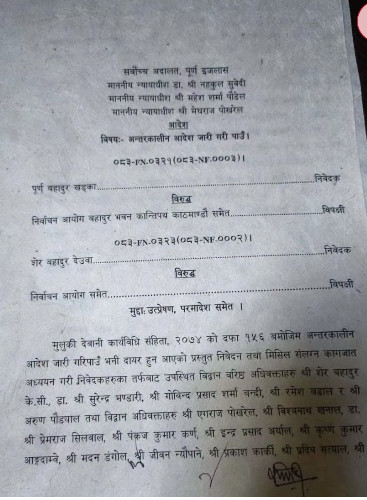 सर्वोच्च अदालत, पूर्ण इजलास
माननीय न्यायाधीश डा. श्री नहकुल सुवेदी
माननीय न्यायाधीश श्री महेश शर्मा पौडेल
माननीय न्यायाधीश श्री मेघराज पोखरेल
आदेश
विषयः- अन्तरकालीन आदेश जारी गरी पाउँ।
०८३-FN.०३२१(०८३-NF.०००३)।
पूर्ण बहादुर खड्का...........................................................निवेदक
विरुद्ध
निर्वाचन आयोग बहादुर भवन कान्तिपथ काठमाण्डौ समेत..............................विपक्षी
०८३-FN.०३२३(०८३-NF.०००२)।
शेर बहादुर देउवा...........................................................निवेदक
विरुद्ध
निर्वाचन आयोग समेत...........................................................विपक्षी
मुद्दाः उत्प्रेषण, परमादेश समेत ।
मुलुकी देवानी कार्यविधि संहिता, २०७४ को दफा १५६ बमोजिम अन्तरकालीन
आदेश जारी गरिपाउँ भनी दायर हुन आएको प्रस्तुत निवेदन तथा मिसिल संलग्न कागजात
अध्ययन गरी निवेदकहरुका तर्फबाट उपस्थित विद्वान वरिष्ठ अधिवक्ताहरु श्री शेर बहादुर
के.सी., डा. श्री सुरेन्द्र भण्डारी, श्री गोविन्द प्रसाद शर्मा बन्दी, श्री रमेश बडाल र श्री
अरुण पौडयाल तथा विद्वान अधिवक्ताहरु श्री एगराज पोखरेल, श्री विश्वनाथ खनाल, डा.
श्री प्रेमराज सिलवाल, श्री पंकज कुमार कर्ण, श्री इन्द्र प्रसाद अर्याल, श्री कृष्ण कुमार
आङ्दाम्बे, श्री मदन डंगोल, श्री जीवन न्यौपाने, श्री प्रकाश कार्की, श्री प्रदिप सत्याल, श्री